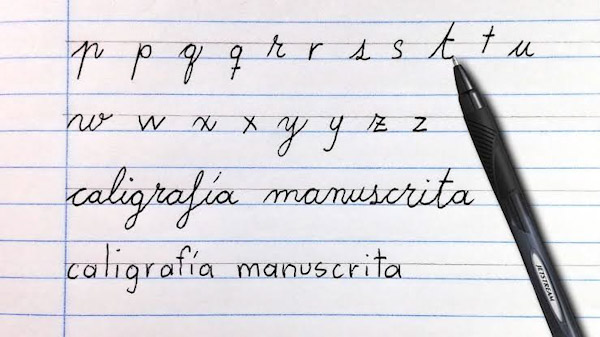 p p q q r r s s t t u
w w x x y y z z
caligrafía manuscrita
caligrafía manuscrita
JETSTREAM